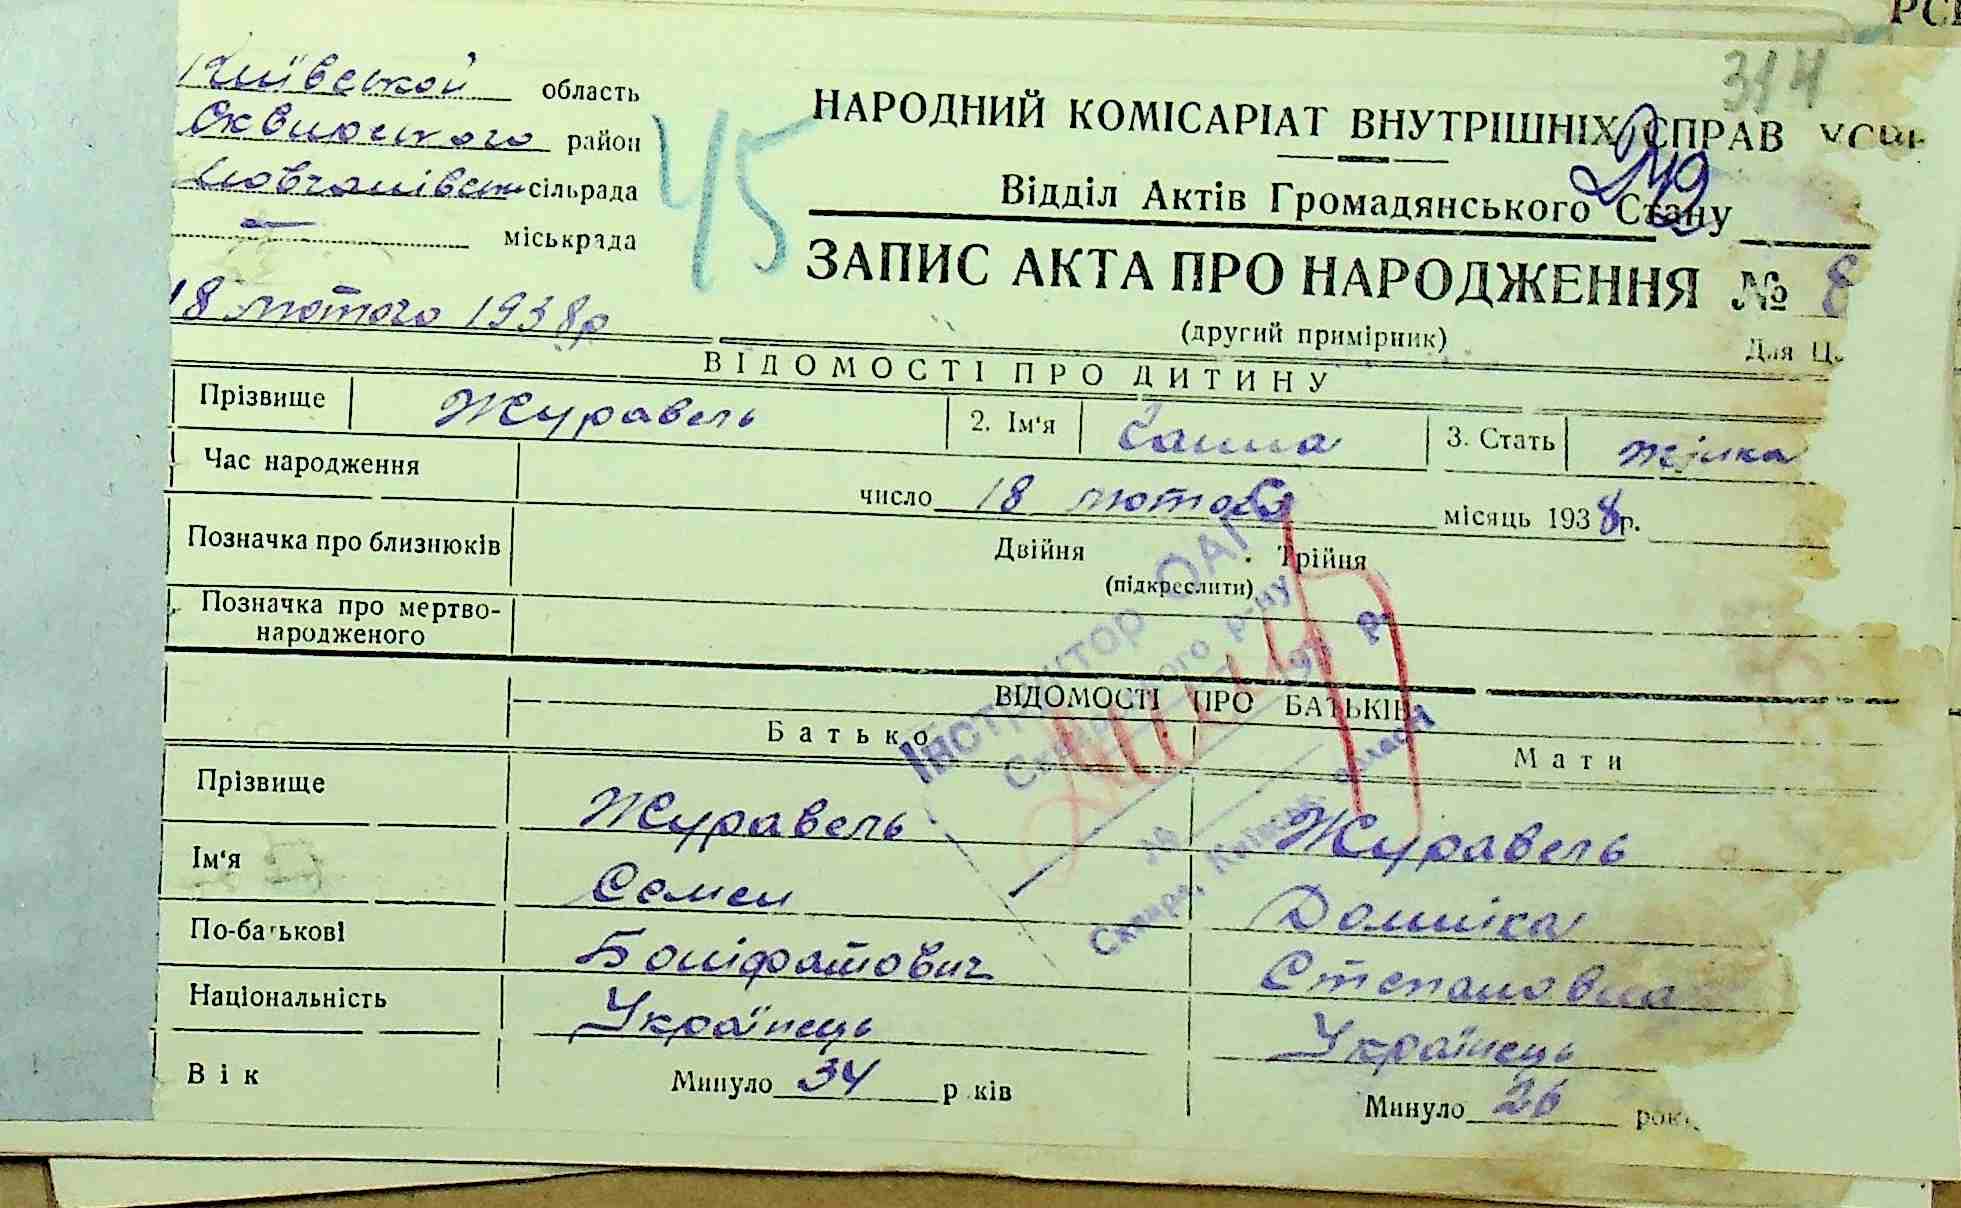 314
Київської область
НАРОДНИЙ КОМІСАРІАТ ВНУТРІШНІХ СПРАВ УСРР
Сквирського район
45
Мовчанівська сільрада
Відділ Актів Громадянського Стану
— міськрада
ЗАПИС АКТА ПРО НАРОДЖЕННЯ № 8
18 лютого 1938р
(другий примірник)
Для Ц
ВІДОМОСТІ ПРО ДИТИНУ
Прізвище Журавель 2. Ім'я Ганна 3. Стать жінка
Час народження число 18 лютого місяць 1938р.
Позначка про близнюків Двійня Трійня
(підкреслити)
Позначка про мертво-
народженого
Інструктор ОАГС
Сквирського р-ну
Сквира, Київськ. області
ВІДОМОСТІ ПРО БАТЬКІВ
Батько Мати
Прізвище Журавель Журавель
Ім'я Семен Домніка
По-батькові Боніфатович Степановна
Національність Українець Українець
Вік Минуло 34 р ків Минуло 26 рокі